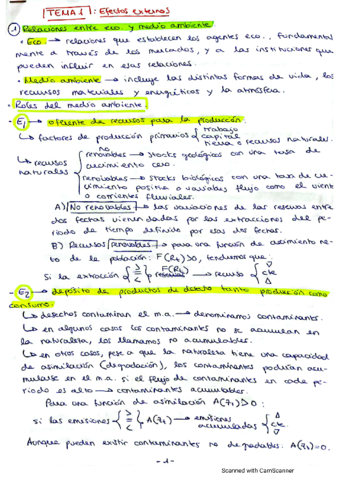 TEMA 1: Efectos externos
① Relaciones entre eco. y medio ambiente
- Eco. → relaciones que establecen los agentes eco., fundamental
mente a través de los mercados, y a las instituciones que
pueden influir en esas relaciones.
- Medio ambiente → incluye las distintas formas de vida, los
recursos materiales y energéticos y la atmósfera.
- Roles del medio ambiente
- E1 → oferente de recursos para la producción.
↳ factores de producción primarios { trabajo
capital
tierra o recursos naturales.
↳ recursos naturales { no renovables → stocks geológicos con una tasa de
crecimiento cero.
renovables → stocks biológicos con una tasa de cre-
cimiento positiva o variables flujo como el viento
o corrientes fluviales.
A) No renovables → las variaciones de las reservas entre
dos fechas vienen dadas por las extracciones del pe-
riodo de tiempo definido por esas dos fechas.
B) Recursos renovables → para una función de crecimiento ne-
to de la población: F(Rt)>0, tendremos que:
Si la extracción { > = < } F(Rt) → recurso { ∇ cte Δ
- E2 → depósito de productos de desecho tanto producción como
consumo.
↳ desechos contaminan el m.a. → denominamos contaminantes.
↳ en algunos casos los contaminantes no se acumulan en
la naturaleza, los llamamos no acumulables.
↳ en otros casos, pese a que la naturaleza tiene una capacidad
de asimilación (degradación), los contaminantes podrían acu-
mularse en el m.a. si el flujo de contaminantes en cada pe-
riodo es alto → contaminantes acumulables.
Para una función de asimilación A(zt)>0:
si las emisiones { > = < } A(zt) → emisiones acumuladas { Δ cte ∇
Aunque pueden existir contaminantes no degradables: A(zt)=0.
-1-
Scanned with CamScanner